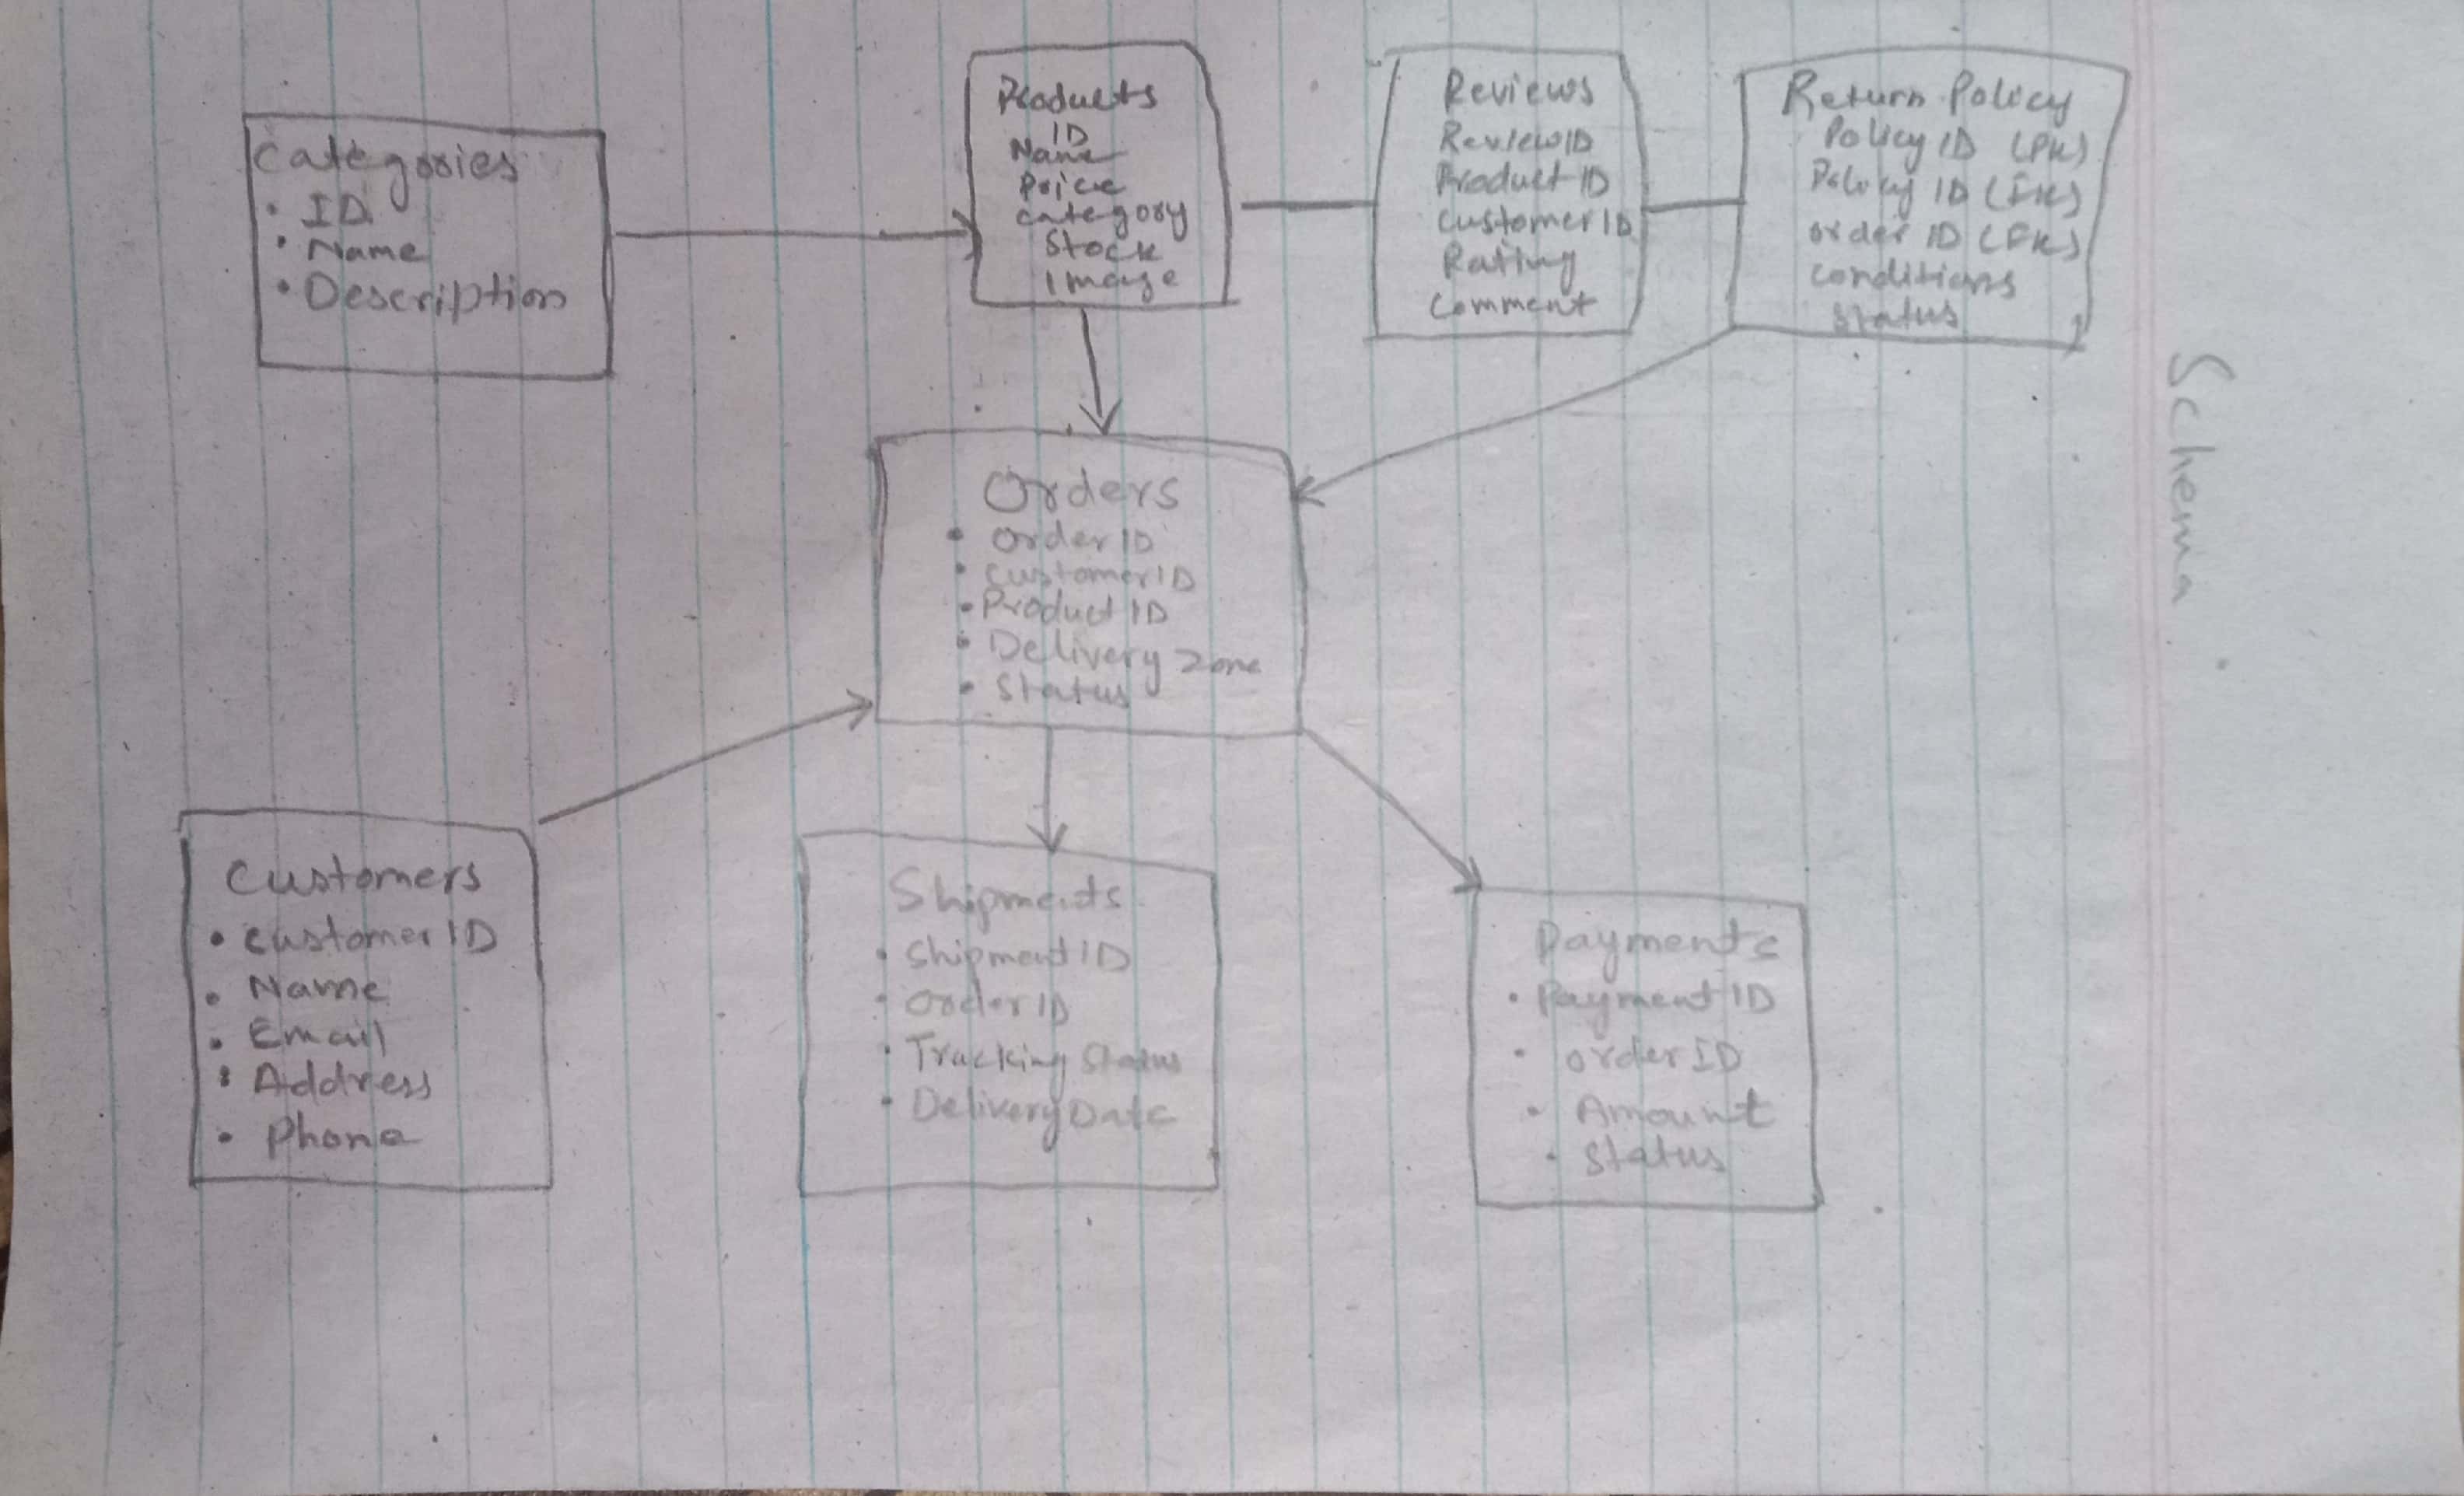 Categories
• ID
• Name
• Description
Products
ID
Name
Price
category
Stock
Image
Reviews
ReviewID
Product ID
CustomerID
Rating
Comment
Return Policy
Policy ID (PK)
Policy ID (FK)
order ID (FK)
conditions
status
Schema
Orders
• Order ID
• CustomerID
• Product ID
• Delivery Zone
• Status
Customers
• Customer ID
• Name
• Email
• Address
• Phone
Shipments
• Shipment ID
• Order ID
• Tracking Status
• Delivery Date
Payments
• Payment ID
• order ID
• Amount
• Status